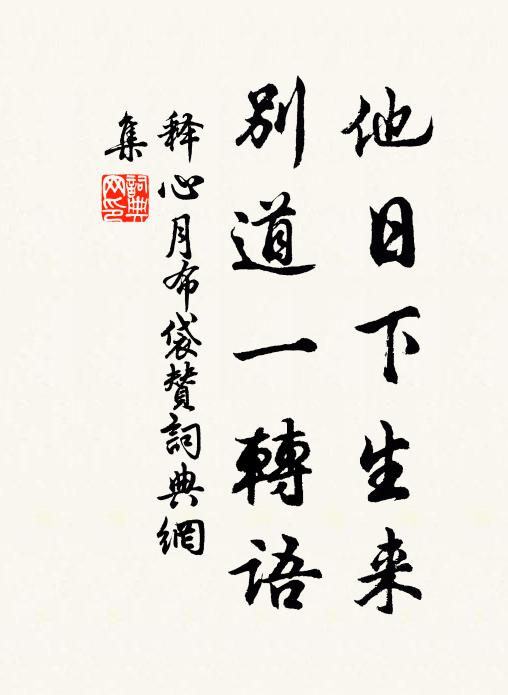 他日下生来
别道一轉語
释心月布袋贊詞典網
集
詞典网印